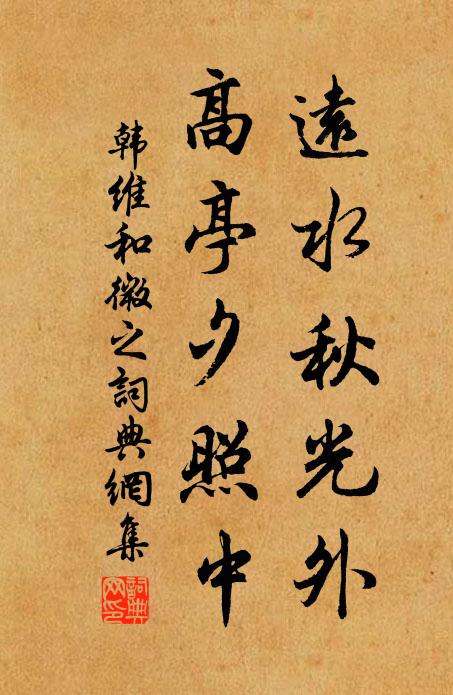 遠水秋光外
高亭夕照中
韩維和微之詞典網集
詞典網印